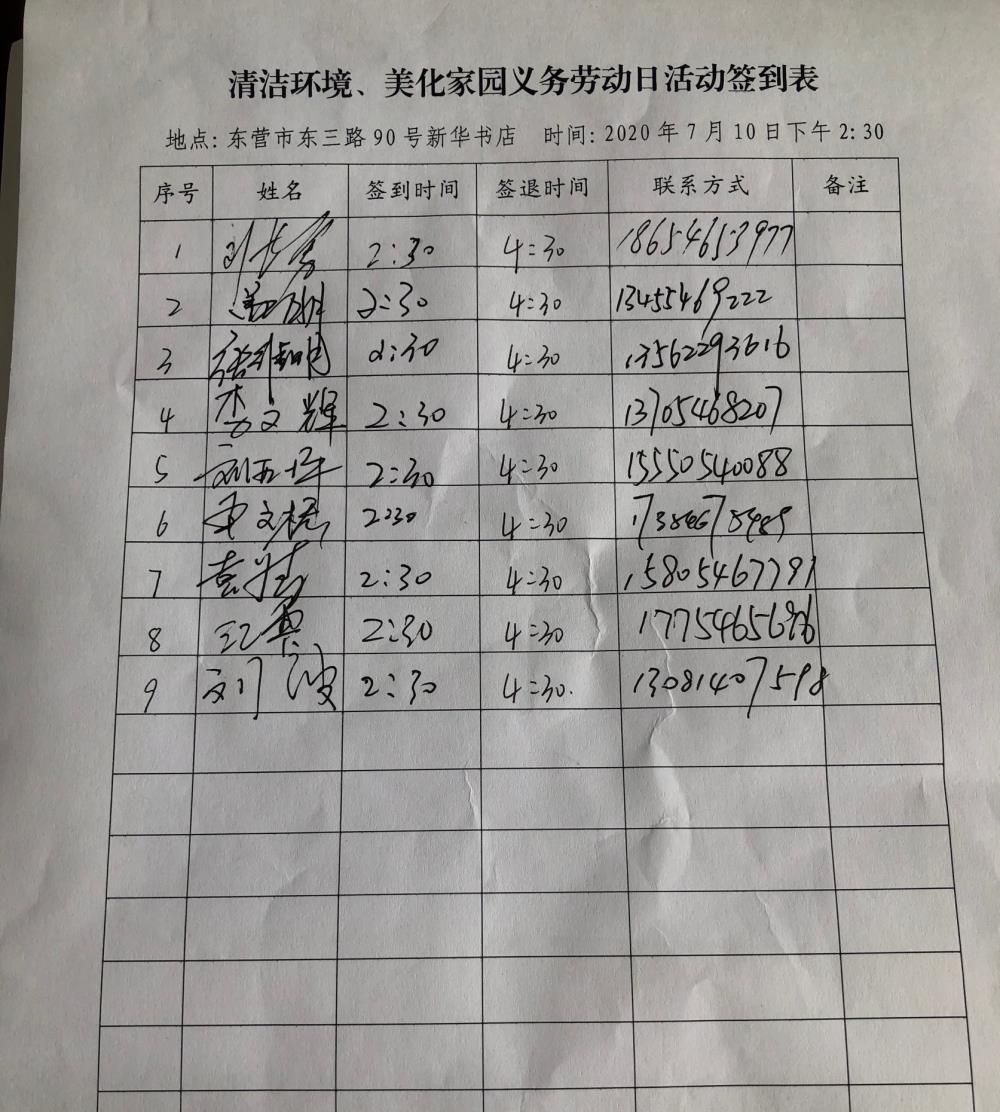 清洁环境、美化家园义务劳动日活动签到表
地点: 东营市东三路90号新华书店 时间: 2020年7月10日下午2:30
序号 姓名 签到时间 签退时间 联系方式 备注
1 2:30 4:30 18654653977
2 2:30 4:30 13455469222
3 2:30 4:30 13562293616
4 李文辉 2:30 4:30 13705468207
5 2:30 4:30 15550540088
6 2:30 4:30
7 2:30 4:30 15805467791
8 2:30 4:30
9 刘波 2:30 4:30. 13081407598